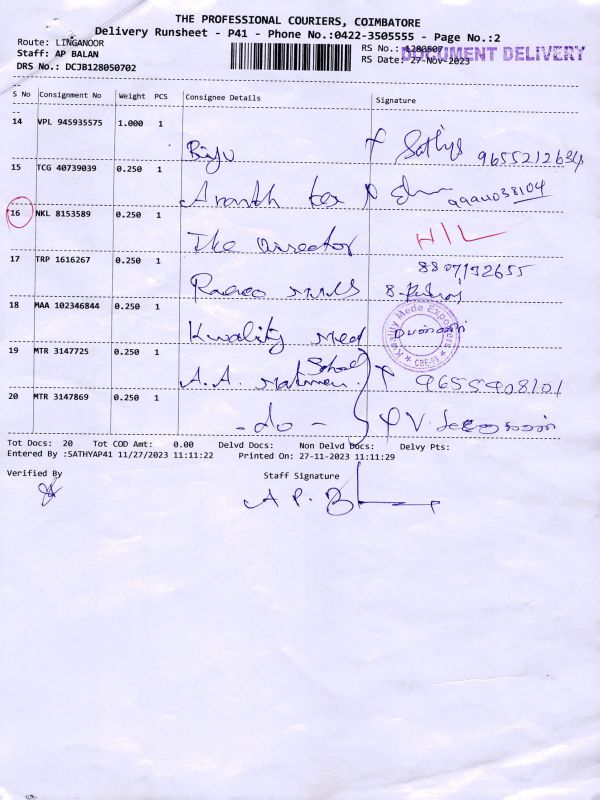 THE PROFESSIONAL COURIERS, COIMBATORE
Delivery Runsheet - P41 - Phone No.:0422-3505555 - Page No.:2
Route: LINGANOOR RS No.: 1280507
Staff: AP BALAN RS Date: 27-Nov-2023
DOCUMENT DELIVERY
DRS No.: DCJB128050702
S No Consignment No Weight PCS Consignee Details Signature
14 VPL 945935575 1.000 1
Biju Sathya 9655212634
15 TCG 40739039 0.250 1
16 NKL 8153589 0.250 1
The Director
17 TRP 1616267 0.250 1 8807132655
18 MAA 102346844 0.250 1
Kwality Med
Kwality Mede Exporters
CBE-93
19 MTR 3147725 0.250 1
School
A.A. 9655908101
20 MTR 3147869 0.250 1
- do -
Tot Docs: 20 Tot COD Amt: 0.00 Delvd Docs: Non Delvd Docs: Delvy Pts:
Entered By :SATHYAP41 11/27/2023 11:11:22 Printed On: 27-11-2023 11:11:29
Verified By Staff Signature